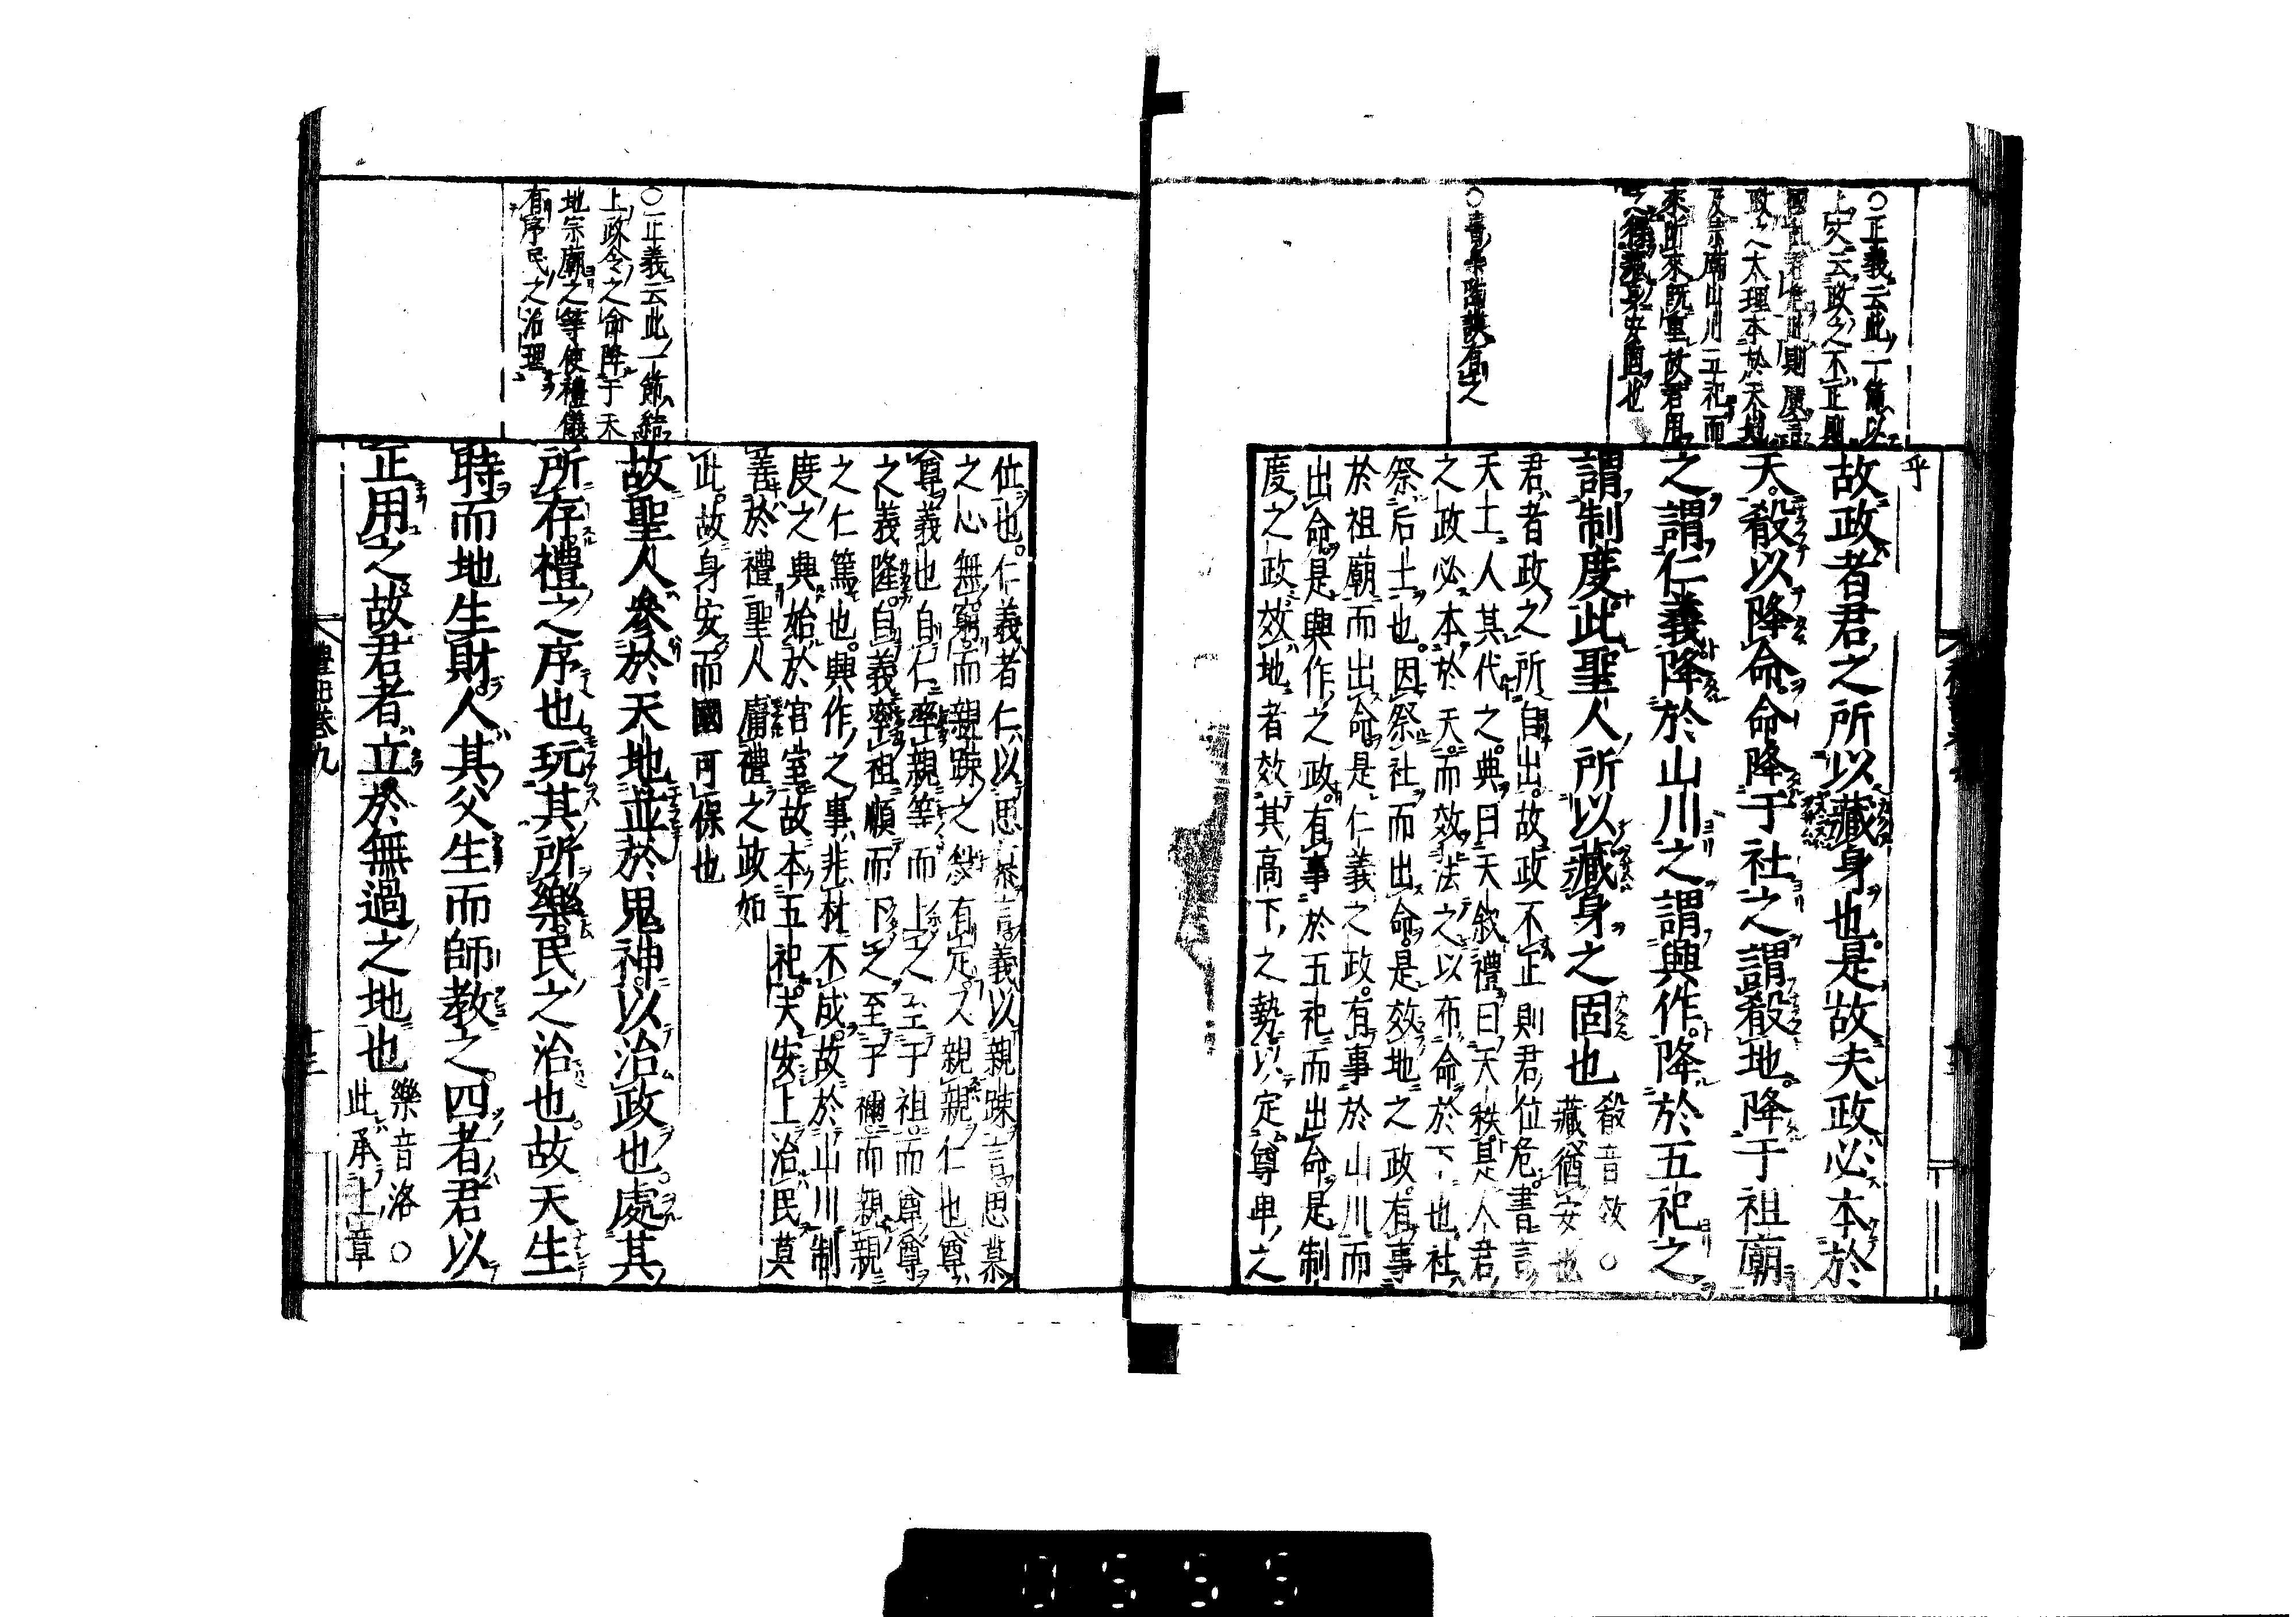 乎
故政者君之所以藏身也是故夫政必本於
天殽以降命命降于社之謂殽地降于祖廟
之謂仁義降於山川之謂興作降於五祀之
謂制度此聖人所以藏身之固也
殽音效○
藏猶安也
君者政之所自出故政不正則君位危書言
天工人其代之典曰天敘禮曰天秩是人君
之政必本於天而效法之以布命於下也社
祭后土也因祭社而出命是效地之政有事
於祖廟而出命是仁義之政有事於山川而
出命是興作之政有事於五祀而出命是制
度之政效地者效其高下之勢以定尊卑之
○正義云此一節以
上文云政之不正則
政之大理本於天地
及宗廟山川五祀而
來所來既重故君用
之得藏身安固也
位也仁義者仁以思慕言義以親疎言思慕
之心無窮而親疎之殺有定又親親仁也尊
尊義也自仁率親等而上之至于祖而尊尊
之義隆自義率祖順而下之至于禰而親親
之仁篤也興作之事非材不成故於山川制
度之興始於宮室故本五祀夫安上治民莫
善於禮聖人庸禮之政如
此故身安而國可保也
故聖人參於天地並於鬼神以治政也處其
所存禮之序也玩其所樂民之治也故天生
時而地生財人其父生而師教之四者君以
正用之故君者立於無過之地也
樂音洛○
此承上章
○正義云此一節結
上政令之命降于天
地宗廟之等使禮儀
有序民之治理
禮記卷九
十三
0553